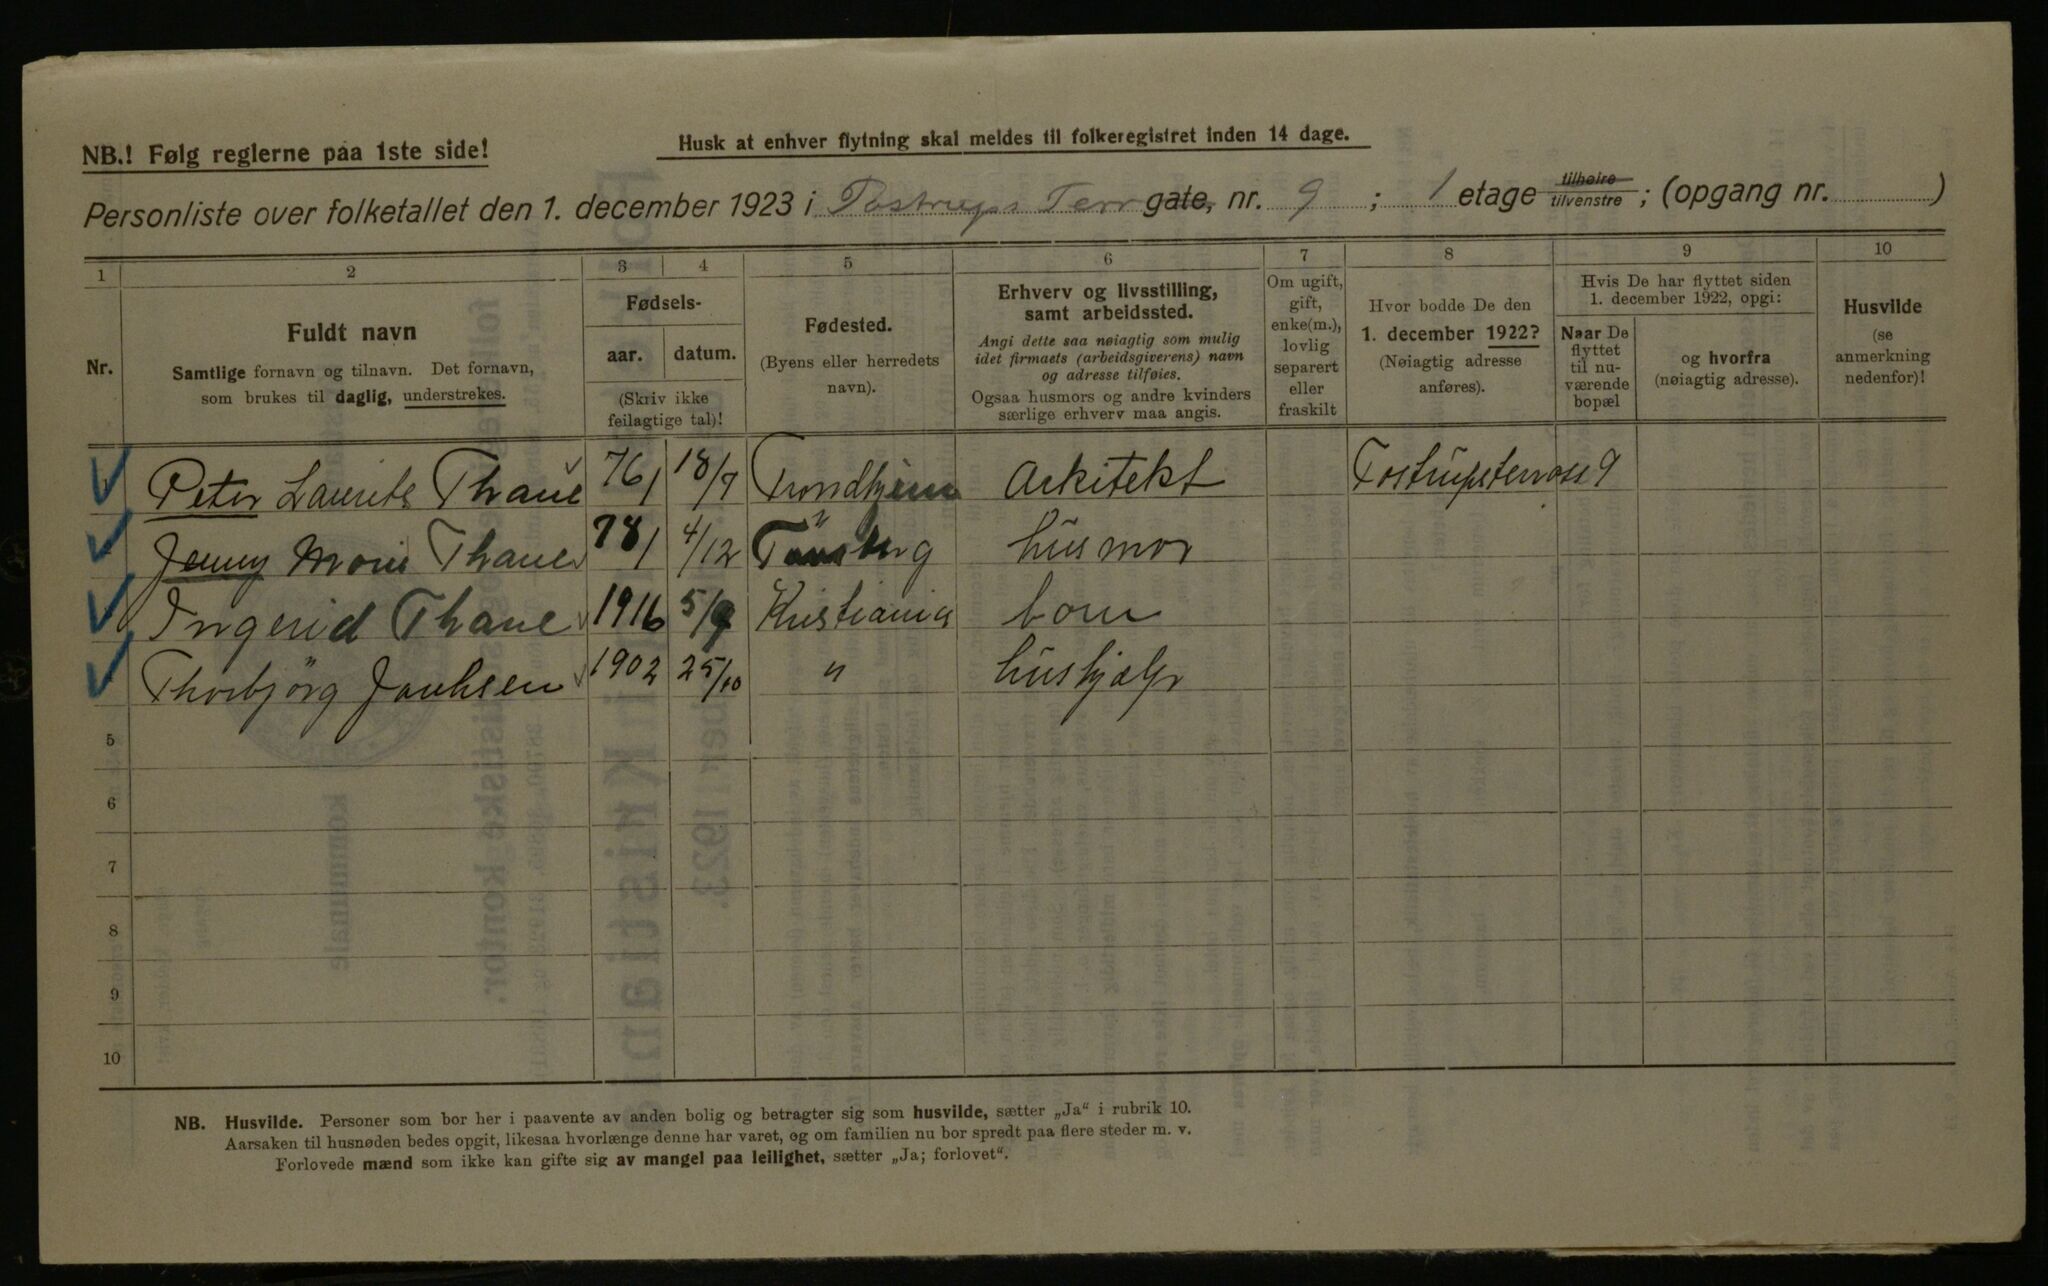 NB.! Følg reglerne paa 1ste side!
Husk at enhver flytning skal meldes til folkeregistret inden 14 dage.
Personliste over folketallet den 1. december 1923 i Tostrups Terr gate, nr. 9 ; 1 etage tilhøire tilvenstre ; (opgang nr. )
1 2 3 4 5 6 7 8 9 10
Nr.
Fuldt navn
Samtlige fornavn og tilnavn. Det fornavn,
som brukes til daglig, understrekes.
Fødsels-
aar. datum.
(Skriv ikke
feilagtige tal)!
Fødested.
(Byens eller herredets
navn).
Erhverv og livsstilling,
samt arbeidssted.
Angi dette saa nøiagtig som mulig
idet firmaets (arbeidsgiverens) navn
og adresse tilføies.
Ogsaa husmors og andre kvinders
særlige erhverv maa angis.
Om ugift,
gift,
enke(m.),
lovlig
separert
eller
fraskilt
Hvor bodde De den
1. december 1922?
(Nøiagtig adresse
anføres).
Hvis De har flyttet siden
1. december 1922, opgi:
Naar De
flyttet
til nu-
værende
bopæl
og hvorfra
(nøiagtig adresse).
Husvilde
(se
anmerkning
nedenfor)!
Peter Laurits Thaue 76 18/7 Trondhjem Arkitekt Tostrupsterrasse 9
Jenny Marie Thaue 78 4/12 Tönsberg husmor
Ingerid Thaue 1916 5/9 Kristiania barn
Thorbjörg Jacobsen 1902 25/10 " hushjælp
5
6
7
8
9
10
NB. Husvilde. Personer som bor her i paavente av anden bolig og betragter sig som husvilde, sætter „Ja“ i rubrik 10.
Aarsaken til husnøden bedes opgit, likesaa hvorlænge denne har varet, og om familien nu bor spredt paa flere steder m. v.
Forlovede mænd som ikke kan gifte sig av mangel paa leilighet, sætter „Ja; forlovet“.